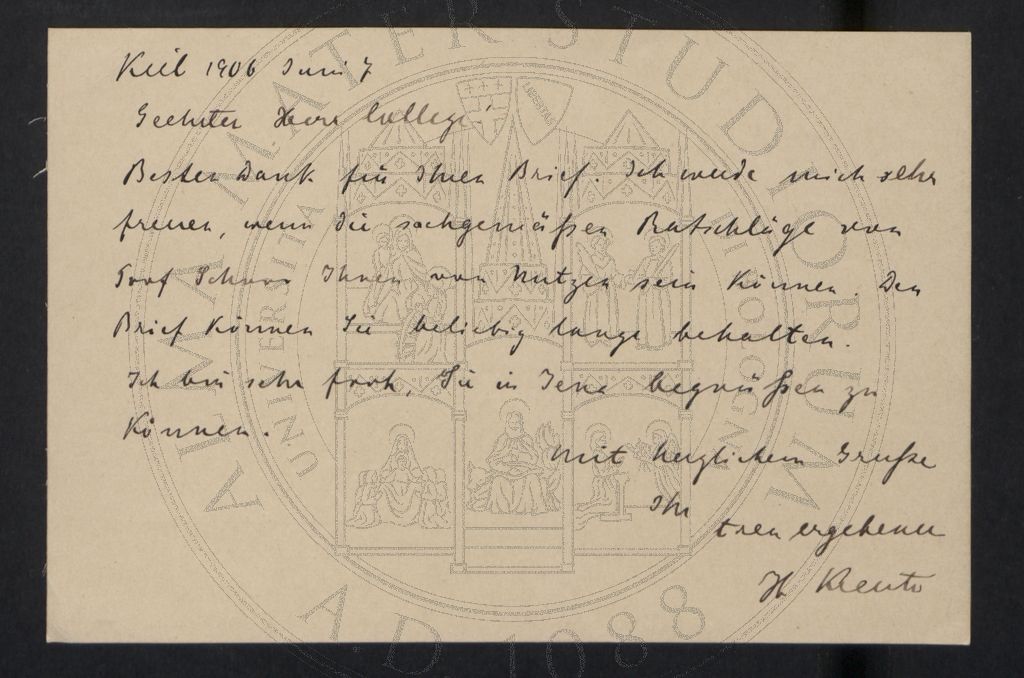 Kiel 1906 Juni 7
Geehrter Herr College
Besten Dank für Ihren Brief. Ich werde mich sehr
freuen, wenn die sachgemäßen Ratschläge von
Prof Schurr Ihnen von Nutzen sein können. Den
Brief können Sie beliebig lange behalten.
Ich bin sehr froh, Sie in Jena begrüßen zu
können.
Mit herzlichem Gruße
Ihr
treu ergebener
H Kreutz
ALMA MATER STUDIORUM
A.D. 1088